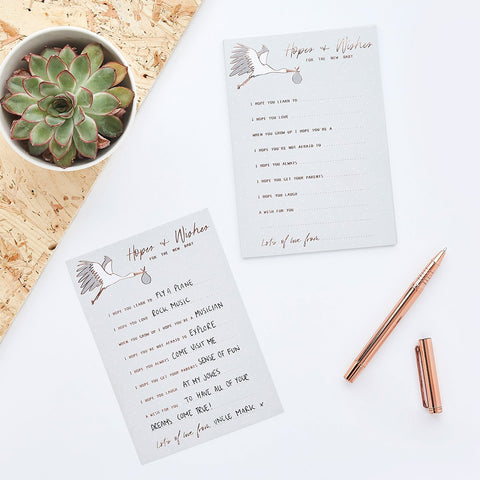 Hopes & Wishes
FOR THE NEW BABY
I HOPE YOU LEARN TO
I HOPE YOU LOVE
WHEN YOU GROW UP I HOPE YOU'RE A
I HOPE YOU'RE NOT AFRAID TO
I HOPE YOU ALWAYS
I HOPE YOU GET YOUR PARENTS
I HOPE YOU LAUGH
A WISH FOR YOU
Lots of love from
Hopes & Wishes
FOR THE NEW BABY
I HOPE YOU LEARN TO FLY A PLANE
I HOPE YOU LOVE ROCK MUSIC
WHEN YOU GROW UP I HOPE YOU'RE A MUSICIAN
I HOPE YOU'RE NOT AFRAID TO EXPLORE
I HOPE YOU ALWAYS COME VISIT ME
I HOPE YOU GET YOUR PARENTS SENSE OF FUN
I HOPE YOU LAUGH AT MY JOKES
A WISH FOR YOU TO HAVE ALL OF YOUR
DREAMS COME TRUE!
Lots of love from UNCLE MARK x